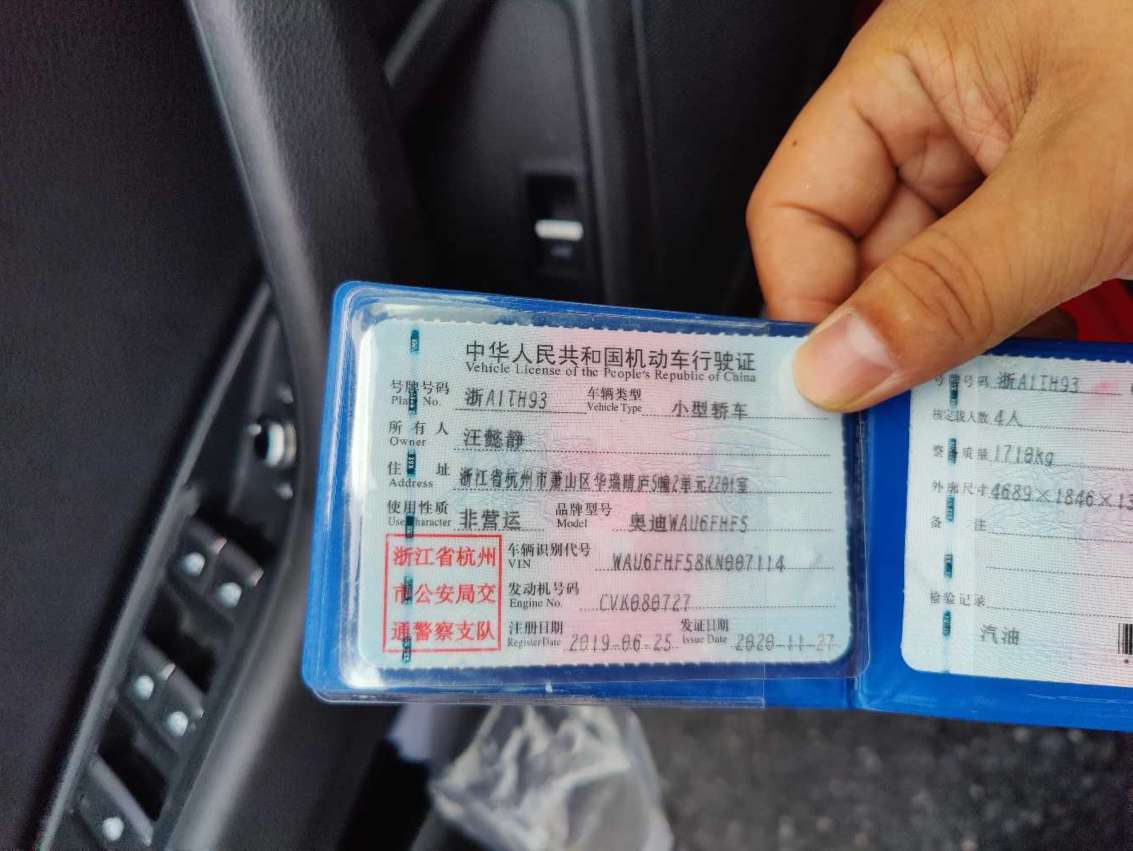 中华人民共和国机动车行驶证
Vehicle License of the People's Republic of China
号牌号码 浙A1TH93 车辆类型 小型轿车
Plate No. Vehicle Type
所有人 汪懿静
Owner
住址 浙江省杭州市萧山区华瑞晴庐5幢2单元2201室
Address
使用性质 非营运 品牌型号 奥迪WAU6FHF5
Use Character Model
浙江省杭州
市公安局交
通警察支队
车辆识别代号 WAU6FHF58KN007114
VIN
发动机号码 CVK080727
Engine No.
注册日期 2019-06-25 发证日期 2020-11-27
Register Date Issue Date
号牌号码 浙A1TH93
核定载人数 4人
整备质量 1710kg
外廓尺寸 4689×1846×13
备注
检验记录
汽油